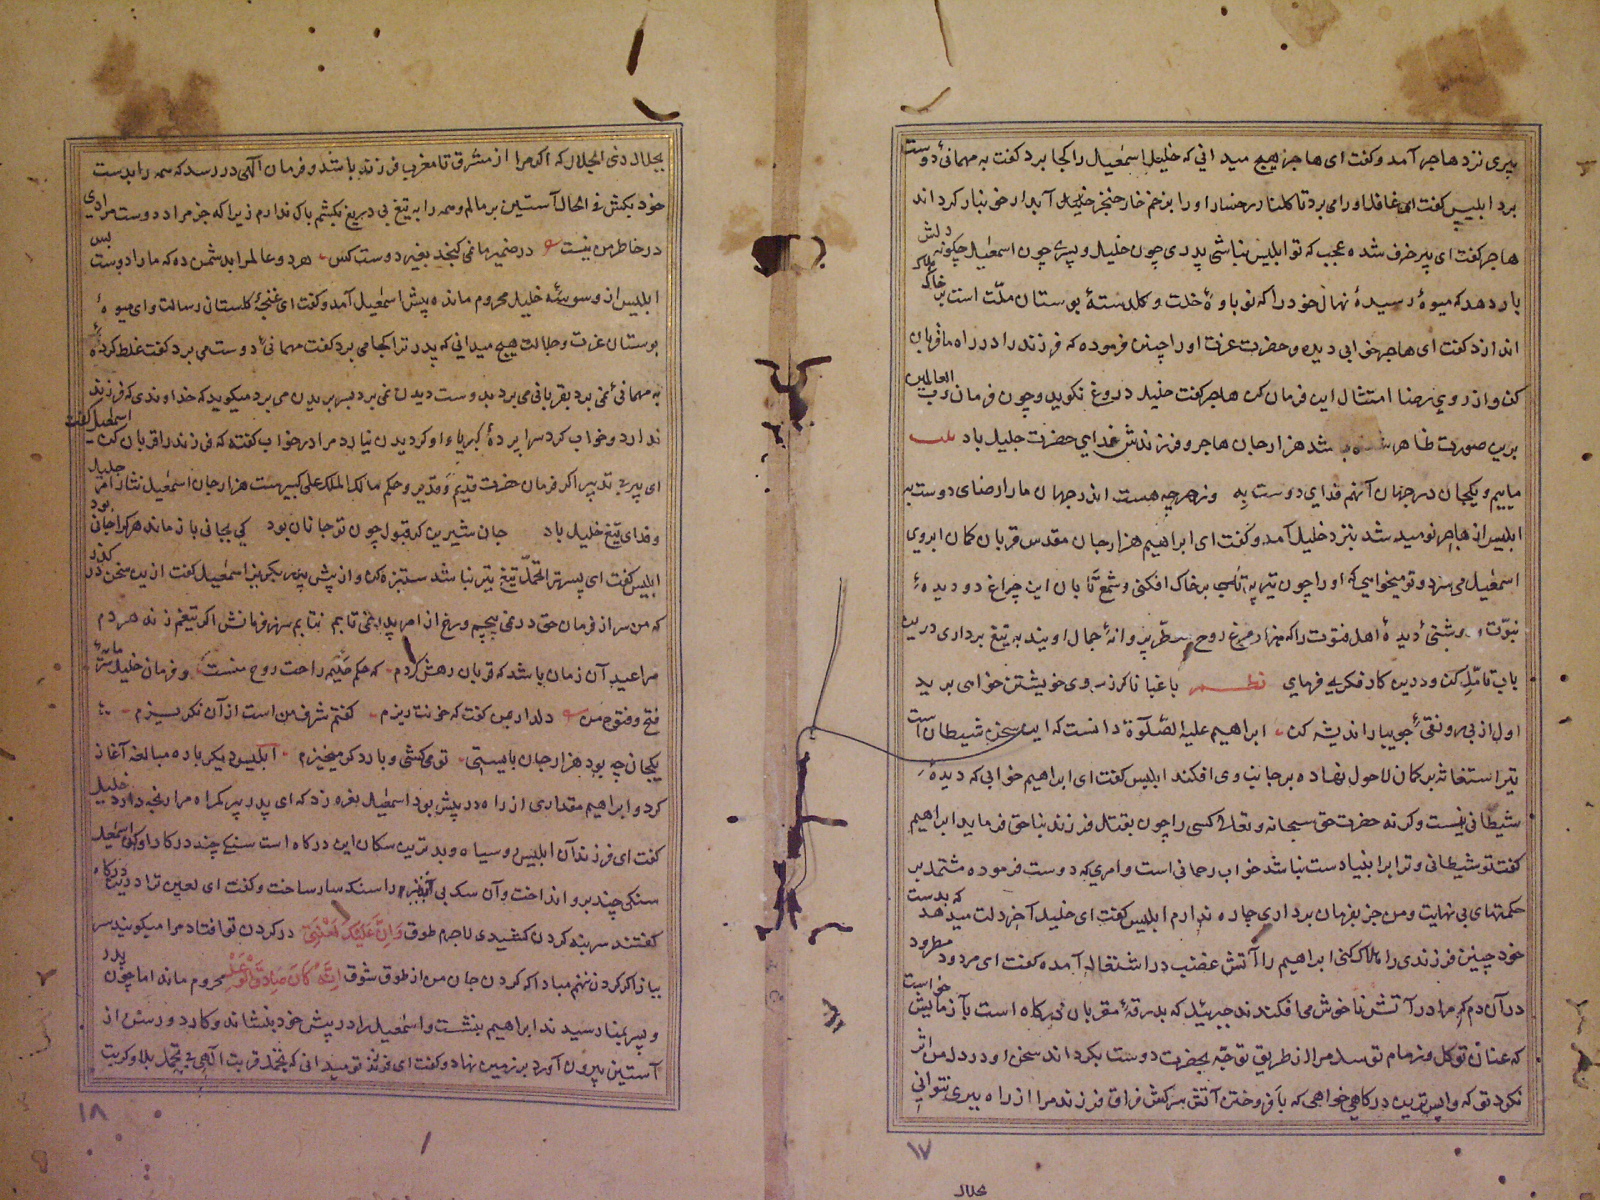 پیری نزد هاجر آمد و گفت ای هاجر هیچ میدانی که خلیل اسمعیل را کجا برد گفت به مهمانی دوست
برد ابلیس گفت ای غافل او را می برد تا گلنار رخسار او را بزخم خار خنجر آبدار خونبار گرداند
هاجر گفت ای پیر خرف شده عجب که تو ابلیس نباشی پدری چون خلیل و پسری چون اسمعیل چگونه دلش
بار دهد که میوهٔ رسیدهٔ نهال خود را که نوباوهٔ خلت و گلدستهٔ بوستان ملّت است بر خاک هلاک
اندازد گفت ای هاجر خوابی دیده و حضرت عزت او را چنین فرموده که فرزند را در راه ما قربان
کن و از روی رضا امتثال این فرمان کن هاجر گفت خلیل دروغ نگوید و چون فرمان رب العالمین
برین صورت ظاهر شده باشد هزار جان هاجر و فرزندش فدای حضرت جلیل باد بیت
ماییم و یکجان در جهان آنهم فدای دوست به وز هرچه هست اندر جهان ما را رضای دوست به
ابلیس از هاجر نومید شد بنزد خلیل آمد و گفت ای ابراهیم هزار جان مقدس قربان کمان ابروی
اسمعیل می سزد و تو میخواهی که او را چون تیر بر خاک افکنی و شمع تابان این چراغ دودیدهٔ
نبوّت و روشنی دیدهٔ اهل فتوت را که هزار مرغ روح مطهّر پروانهٔ جمال اویند به تیغ برداری درین
باب تأمّل کن و درین کار فکری فرمای نظم باغبانا گر ز سروی خویشتن خواهی برید
اول از بی رونقی جویبار اندیشه کن ابراهیم علیه الصّلوة دانست که این سخن شیطان است
تیر استغاثه بر کمان لاحول نهاده بر جانب وی افکند ابلیس گفت ای ابراهیم خوابی که دیدهٔ
شیطانی نیست وگرنه حضرت حق سبحانه و تعالی کسی را چون بقتل فرزند بناحق فرماید ابراهیم
گفت تو شیطانی و ترا بر انبیا دست نباشد خواب رحمانی است و امری که دوست فرموده مشتمل بر
حکمتهای بی نهایت و من جز بفرمان برداری چاره ندارم ابلیس گفت ای خلیل آخر دلت میدهد که بدست
خود چنین فرزندی را هلاک کنی ابراهیم را آتش غضب در اشتعال آمده گفت ای مردود مطرود
در آن دم که مرا در آتش ناخوش می افکندند جبرئیل که بدرقهٔ مقربان درگاه است بآزمایش خواست
که عنان توکل و زمام توسل مرا از طریق توجّه بحضرت دوست بگرداند سخن او در دل من اثر
نکرد تو که واپس ترین درگاهی خواهی که بافروختن آتش سرکش فراق فرزند مرا از راه ببری نتوانی
۱۷
بجلال
بجلال ذی الجلال که اگر مرا از مشرق تا مغرب فرزند باشد و فرمان الهی در رسد که همه را بدست
خود بکش فی الحال آستین بر مالم و همه را به تیغ بی دریغ بکشم باک ندارم زیرا که جز مراد دوست مرادی
در خاطر من نیست در ضمیر ما نمی گنجد بغیر دوست کس هر دو عالم را بدشمن ده که ما را دوست بس
ابلیس از وسوسهٔ خلیل محروم مانده پیش اسمعیل آمد و گفت ای غنچهٔ گلستان رسالت و ای میوهٔ
بوستان عزت و جلالت هیچ میدانی که پدر ترا کجا می برد گفت مهمانی دوست می برد گفت غلط کردهٔ
به مهمانی نمی برد بقربانی می برد بدوست دیدن نمی برد بسر بریدن می برد میگوید که خداوندی که فرزند
ندارد و خواب گرد سراپردهٔ کبریا او گردیدن نیارد مرا در خواب گفته که فرزند را قربان کن اسمعیل گفت
ای پیر بی تدبیر اگر فرمان حضرت قدیم و قدیر و حکم مالک الملک علی کبیر هست هزار جان اسمعیل نثار امر جلیل
و فدای تیغ خلیل باد جان شیرین گر قبول چون تو جانان بود کی بجانی باز ماند هرکرا جانی بود
ابلیس گفت ای پسر ترا تحمّل تیغ تیز نباشد ستیزه مکن و از پیش پدر بگریز اسمعیل گفت ازین سخن در گذر
که من سر از فرمان حق در نمی پیچم و رخ از امر پدر نمی تابم نتابم سر ز فرمانش اگر تیغم زند هر دم
مرا عید آن زمان باشد که قربان رهش گردم که حکم حکیم راحت روح منست و فرمان خلیل مایهٔ
فتح و فتوح من دلدار بمن گفت که خونت ریزم گفتم شرف من است از آن نگریزم
یکجان چه بود هزار جان بایستی تو می کشی و بار دگر میخیزم ابلیس دیگر باره مبالغه آغاز
کرد و ابراهیم مقداری از راه در پیش بود اسمعیل نعره زد که ای پدر پیر گمراه مرا رنجه دارد خلیل
گفت ای فرزند آن ابلیس روسیاه و بدترین سگان این درگاه است سنگی چند در کار او کن اسمعیل
سنگی چند برو انداخت و آن سگ بی را سنگسار ساخت و گفت ای لعین ترا درین درگاه
گفتند سر بنه گردن کشیدی لاجرم طوق وَاِنَّ عَلَیْکَ لَعْنَتِی در گردن تو افتاد مرا میگویند سر
بباز اگر گردن ننهم مبادا که گردن جان من از طوق شوق اِنَّهُ کَانَ صَادِقَ الْوَعْدِ محروم ماند اما چون پدر
و پسر بمنا رسیدند ابراهیم بنشست و اسمعیل را در پیش خود بنشاند و کارد و رسن از
آستین بیرون آورد بر زمین نهاد و گفت ای فرزند تو میدانی که
۱۸